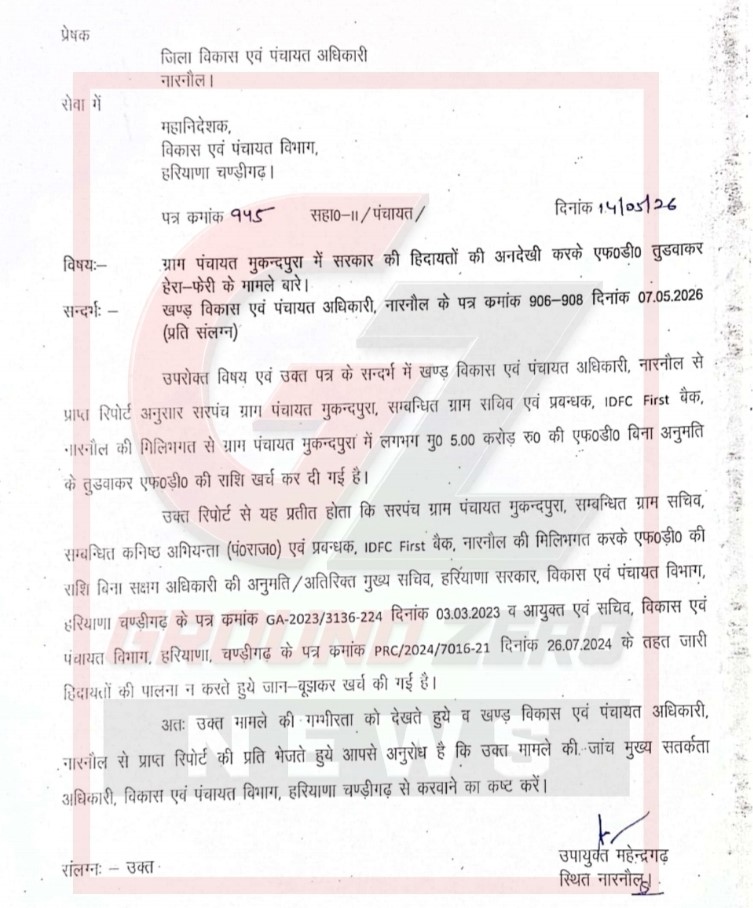 प्रेषक
जिला विकास एवं पंचायत अधिकारी
नारनौल।
सेवा में
महानिदेशक,
विकास एवं पंचायत विभाग,
हरियाणा चण्डीगढ़।
पत्र कमांक 945 सहा0-II/पंचायत/ दिनांक 14/05/26
विषयः– ग्राम पंचायत मुकन्दपुरा में सरकार की हिदायतों की अनदेखी करके एफ0डी0 तुडवाकर
हेरा–फेरी के मामले बारे।
सन्दर्भः – खण्ड विकास एवं पंचायत अधिकारी, नारनौल के पत्र कमांक 906-908 दिनांक 07.05.2026
(प्रति संलग्न)
उपरोक्त विषय एवं उक्त पत्र के सन्दर्भ में खण्ड विकास एवं पंचायत अधिकारी, नारनौल से
प्राप्त रिपोर्ट अनुसार सरपंच ग्राम पंचायत मुकन्दपुरा, सम्बन्धित ग्राम सचिव एवं प्रबन्धक, IDFC First बैक,
नारनौल की मिलिभगत से ग्राम पंचायत मुकन्दपुरा में लगभग मु0 5.00 करोड़ रु0 की एफ0डी0 बिना अनुमति
के तुडवाकर एफ0डी0 की राशि खर्च कर दी गई है।
उक्त रिपोर्ट से यह प्रतीत होता कि सरपंच ग्राम पंचायत मुकन्दपुरा, सम्बन्धित ग्राम सचिव,
सम्बन्धित कनिष्ठ अभियन्ता (पं0राज0) एवं प्रबन्धक, IDFC First बैक, नारनौल की मिलिभगत करके एफ0डी0 की
राशि बिना सक्षग अधिकारी की अनुमति/अतिरिक्त मुख्य सचिव, हरियाणा सरकार, विकास एवं पंचायत विभाग,
हरियाणा चण्डीगढ़ के पत्र कमांक GA-2023/3136-224 दिनांक 03.03.2023 व आयुक्त एवं सचिव, विकास एवं
पंचायत विभाग, हरियाणा, चण्डीगढ़ के पत्र कमांक PRC/2024/7016-21 दिनांक 26.07.2024 के तहत जारी
हिदायतों की पालना न करते हुये जान–बूझकर खर्च की गई है।
अतः उक्त मामले की गम्भीरता को देखते हुये व खण्ड विकास एवं पंचायत अधिकारी,
नारनौल से प्राप्त रिपोर्ट की प्रति भेजते हुये आपसे अनुरोध है कि उक्त मामले की जांच मुख्य सतर्कता
अधिकारी, विकास एवं पंचायत विभाग, हरियाणा चण्डीगढ़ से करवाने का कष्ट करें।
उपायुक्त महेन्द्रगढ़
स्थित नारनौल।
संलग्नः – उक्त
GZ
GROUND ZERO
NEWS